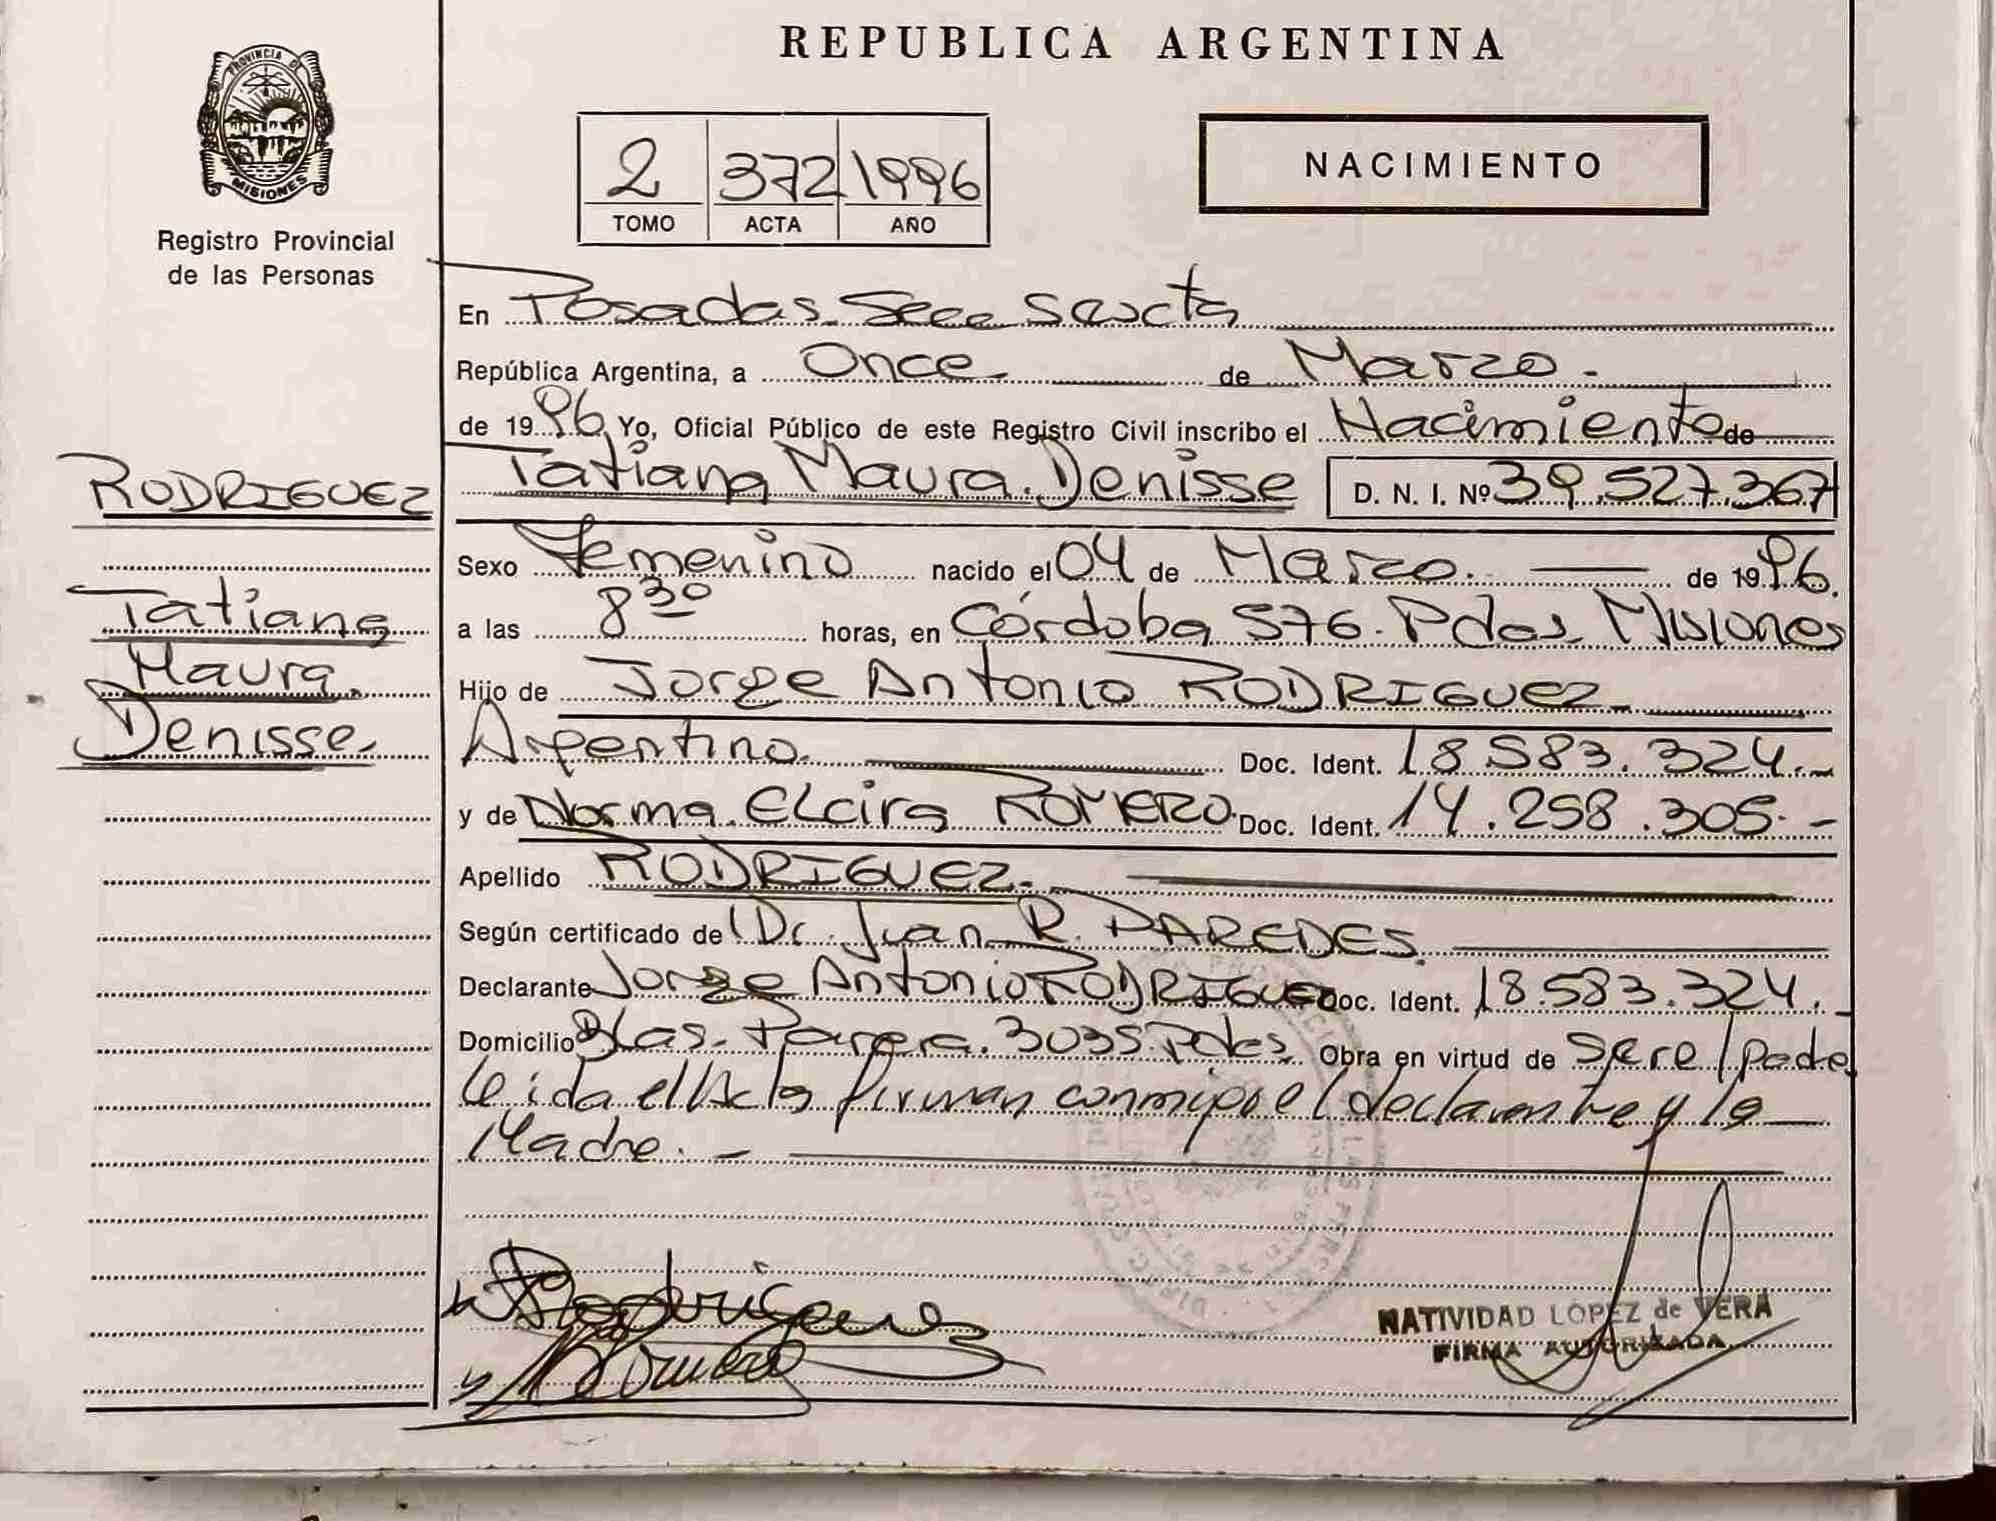 REPUBLICA ARGENTINA
PROVINCIA DE
MISIONES
Registro Provincial
de las Personas
2 372 1996
TOMO ACTA AÑO
NACIMIENTO
En Posadas. Secc Sexta
República Argentina, a Once de Marzo.
de 1996 Yo, Oficial Público de este Registro Civil inscribo el Nacimiento de
Tatiana Maura Denisse D. N. I. Nº 39.527.367
RODRIGUEZ
Tatiana
Maura
Denisse
Sexo Femenino nacido el 04 de Marzo. de 1996.
a las 8 30 horas, en Córdoba 576. Pdas. Misiones
Hijo de Jorge Antonio RODRIGUEZ
Argentino. Doc. Ident. 18.583.324.-
y de Norma Elcira ROMERO. Doc. Ident. 14.258.305.-
Apellido RODRIGUEZ.
Según certificado de Dr. Juan R. PAREDES.
Declarante Jorge Antonio RODRIGUEZ Doc. Ident. 18.583.324.-
Domicilio Blas Parera. 3035. Pdas. Obra en virtud de Ser el padre
leida el Acta firman conmigo el declarante y la
Madre.-
Rodriguez
NATIVIDAD LOPEZ de VERA
FIRMA AUTORIZADA